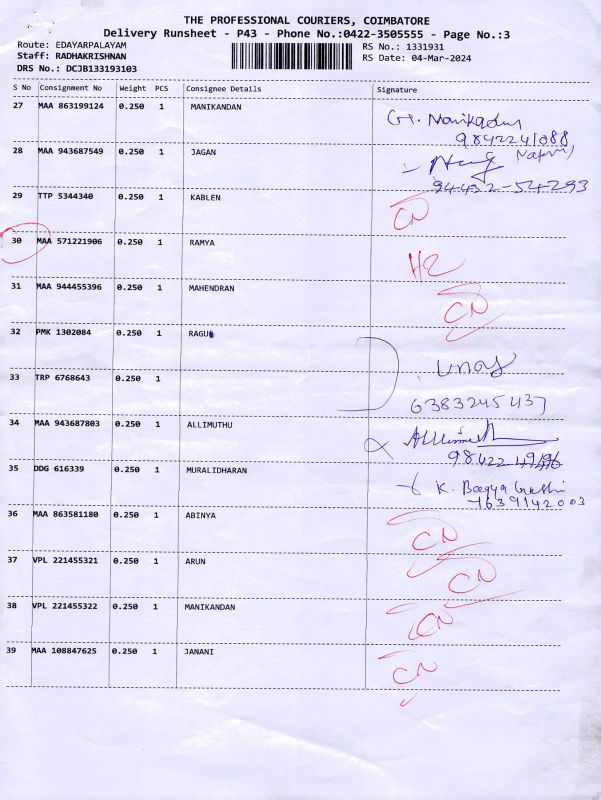 THE PROFESSIONAL COURIERS, COIMBATORE
Delivery Runsheet - P43 - Phone No.:0422-3505555 - Page No.:3
Route: EDAYARPALAYAM RS No.: 1331931
Staff: RADHAKRISHNAN RS Date: 04-Mar-2024
DRS No.: DCJB133193103
S No Consignment No Weight PCS Consignee Details Signature
27 MAA 863199124 0.250 1 MANIKANDAN
9842241088
28 MAA 943687549 0.250 1 JAGAN
94432-54293
29 TTP 5344340 0.250 1 KABLEN CN
30 MAA 571221906 0.250 1 RAMYA
31 MAA 944455396 0.250 1 MAHENDRAN CN
32 PMK 1302084 0.250 1 RAGUL
33 TRP 6768643 0.250 1
6383245437
34 MAA 943687803 0.250 1 ALLIMUTHU
35 DDG 616339 0.250 1 MURALIDHARAN K.
36 MAA 863581180 0.250 1 ABINYA CN
37 VPL 221455321 0.250 1 ARUN CN
38 VPL 221455322 0.250 1 MANIKANDAN CN
39 MAA 108847625 0.250 1 JANANI CN